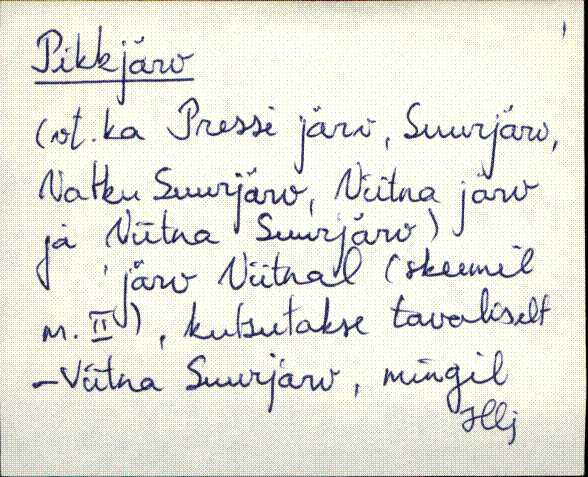 Pikkjärv
(vt. ka Pressi järv, Suurjärv,
Natku Suurjärv, Viitna järv
ja Viitna Suurjärv)
järv Viitnal (skeemil
m. II), kutsutakse tavaliselt
– Viitna Suurjärv, mingil